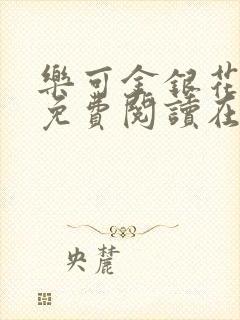 樂可金銀花
免費閱讀在
央麓